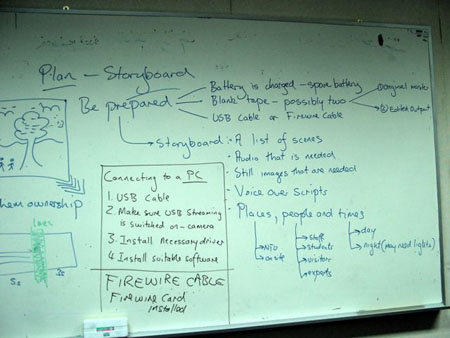 Plan - Storyboard
Be prepared
Battery is charged - spare battery
Blank tape - possibly two
USB Cable or Firewire Cable
① original master
② Edited Output
Storyboard:
• A list of scenes
• Audio that is needed
• Still images that are needed
• Voice over Scripts
• Places, people and times
NTU
onsite
staff
students
visitor
experts
day
night (may need lights)
Connecting to a PC
1. USB Cable
2. Make sure USB Streaming
is switched on - camera
3. Install necessary driver
4. Install suitable software
FIREWIRE CABLE
Firewire Card
installed
them ownership